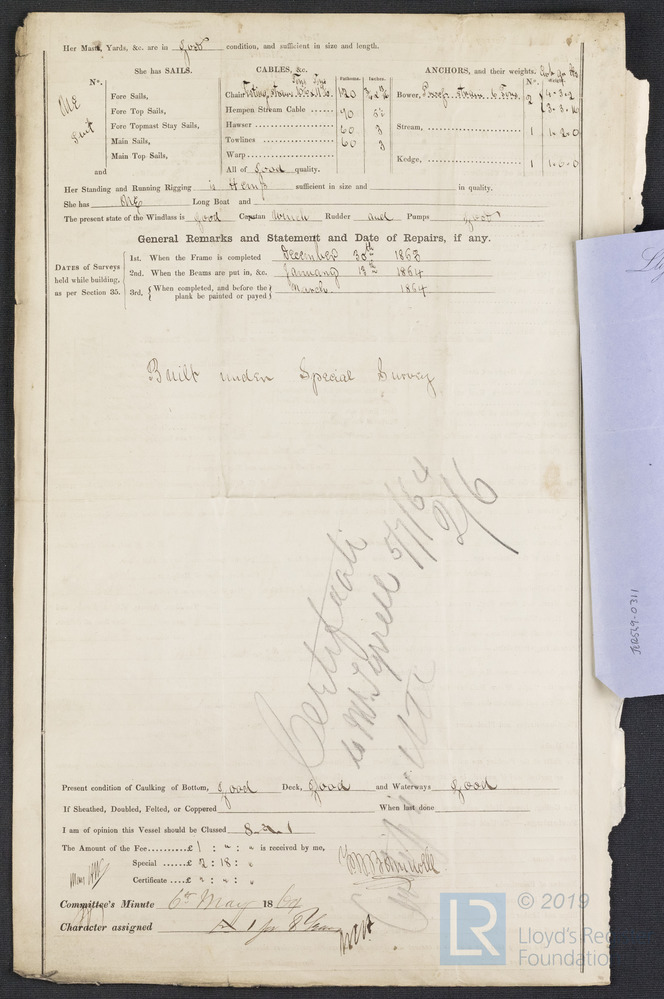 Her Masts, Yards, &c. are in good condition, and sufficient in size and length.
She has SAILS.
N°.
One
Suit
Fore Sails,
Fore Top Sails,
Fore Topmast Stay Sails,
Main Sails,
Main Top Sails,
and
CABLES, &c.
Fathoms. Inches.
Chain 120
Hempen Stream Cable 90
Hawser 60 3
Towlines 60 3
Warp
All of Good quality.
ANCHORS, and their weights.
N°. Weight.
Bower, 2 4-3-2
Stream, 1 1-2-0
Kedge, 1 1-0-0
Her Standing and Running Rigging is Hemp sufficient in size and in quality.
She has One Long Boat and
The present state of the Windlass is good Capstan Winch Rudder and Pumps good
General Remarks and Statement and Date of Repairs, if any.
DATES of Surveys held while building, as per Section 35.
1st. When the Frame is completed December 30th 1863
2nd. When the Beams are put in, &c. January 1864
3rd. When completed, and before the plank be painted or payed March 1864
Built under Special Survey
Certificate
to Mr Tyrrell 5/7/64
2/6
LR529-0311
Present condition of Caulking of Bottom, Good Deck, Good and Waterways Good
If Sheathed, Doubled, Felted, or Coppered When last done
I am of opinion this Vessel should be Classed 8 A 1
The Amount of the Fee £ 1 : " : " is received by me,
Special £ 2 : 18 : "
Certificate £ " : " : "
Committee's Minute 6th May 1864
Character assigned A 1 for 8 Years
© 2019
LR
Lloyd's Register
Foundation